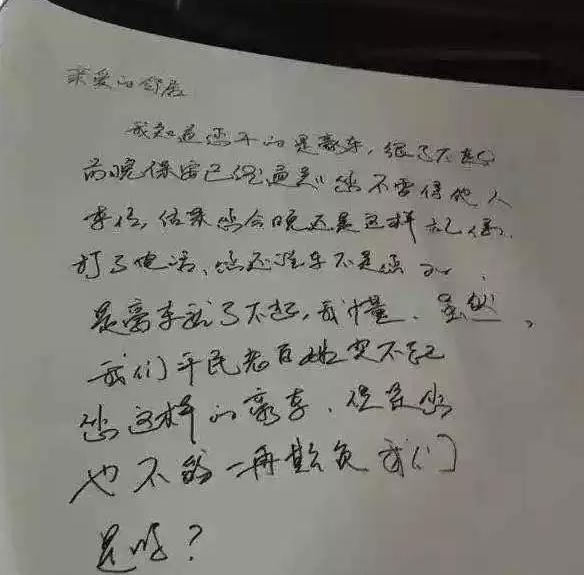 亲爱的邻居
我知道您开的是豪车，很了不起
前晚保安已经通知您不要停他人
车位，结果您今晚还是这样
打了电话、您还说车不是您
是豪车就了不起，我懂、虽然，
我们平民老百姓买不起
您这样的豪车、但是您
也不能一再欺负我们
是吗？